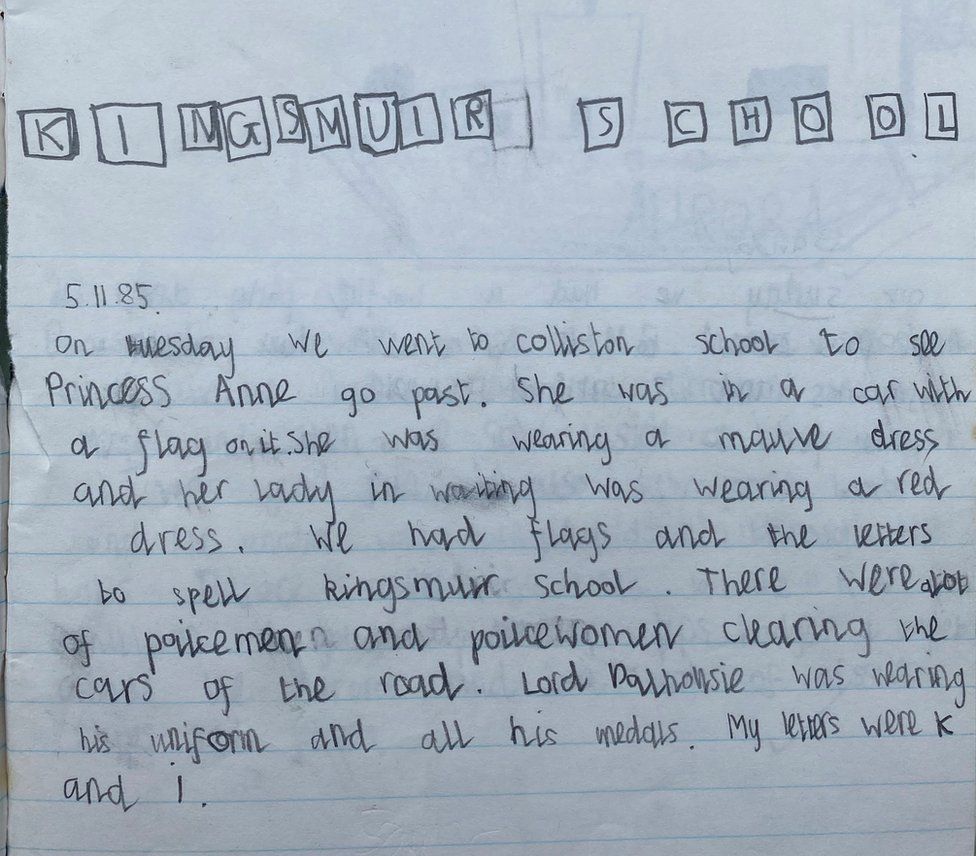 KINGSMUIR SCHOOL
5.11.85.
On tuesday we went to colliston school to see
Princess Anne go past. She was in a car with
a flag on it. She was wearing a mauve dress
and her lady in waiting was wearing a red
dress. We had flags and the letters
to spell kingsmuir school. There were alot
of policemen and policewomen clearing the
cars of the road. Lord Dalhousie was wearing
his uniform and all his medals. My letters were K
and i.